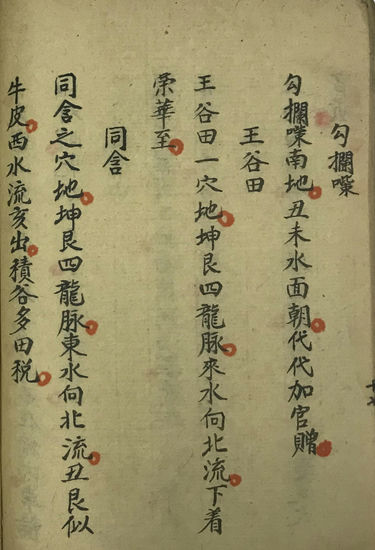 勾攔㗼
勾攔㗼南地丑未水面朝代代加官贈
王谷田
王谷田一穴地坤艮四龍脉來水向北流下着
荣華至
同含
同含之穴地坤艮四龍脉東水向北流丑艮似
牛皮西水流亥出積谷多田税